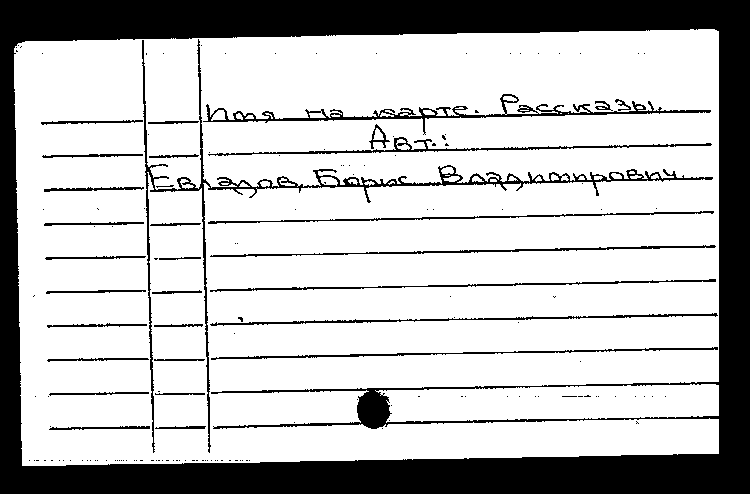 Имя на карте. Рассказы.
Авт.:
Евладов, Борис Владимирович.